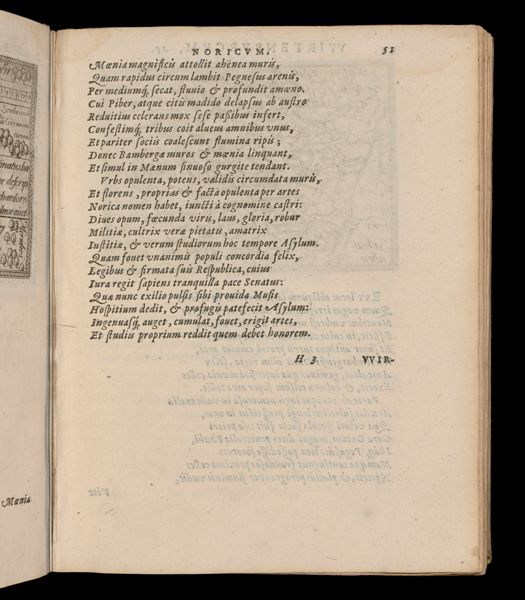 NORICVM. 51
Mœnia magnificis attollit ahenea muris,
Quam rapidus circum lambit Pegnesus arenis,
Per mediumq́; secat, fluuio & profundit amœno.
Cui Piber, atque citis madido delapsus ab austro
Reduitius celerans mox sese paßibus infert,
Confestimq́; tribus coit alueus amnibus vnus,
Et pariter sociis coalescunt flumina ripis;
Donec Bambergæ muros & mœnia linquant,
Et simul in Mœnum sinuoso gurgite tendant.
Vrbs opulenta, potens, validis circumdata muris,
Et florens, proprias & facta opulenta per artes
Norica nomen habet, iuncti à cognomine castri:
Diues opum, fœcunda viris, laus, gloria, robur
Militiæ, cultrix veræ pietatis, amatrix
Iustitiæ, & verum studiorum hoc tempore Asylum.
Quam fouet vnanimis populi concordia felix,
Legibus & firmata suis Respublica, cuius
Iura regit sapiens tranquilla pace Senatus:
Quæ nunc exilio pulsis sibi prouida Musis
Hospitium dedit, & profugis patefecit Asylum:
Ingenuasq́; auget, cumulat, fouet, erigit artes,
Et studiis proprium reddit quem debet honorem.
H 3 VVIR-
Mœnia